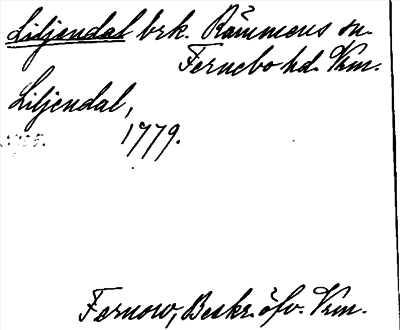 Liljendal brk. Rämmens sn.
Fernebo hd. Vrm.
Liljendal,
1779.
Fernow, Beskr. öfv. Vrm.